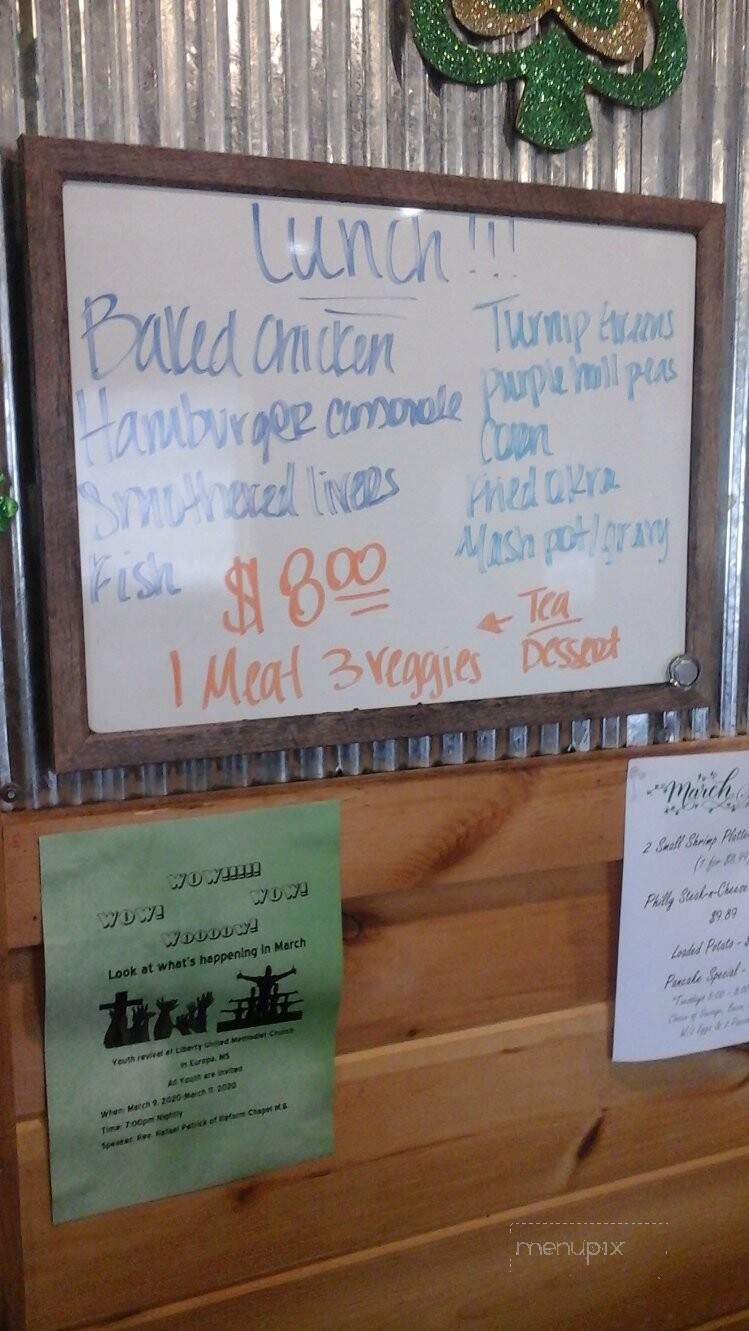 Lunch!!!
Baked Chicken
Hamburger Casserole
Smothered livers
Fish
Turnip Greens
purple hull peas
Corn
Fried Okra
Mash pot/gravy
$8.00
1 Meat 3 veggies
Tea
Dessert
WOW!!!!!
WOW!
WOW!
WOOOOW!
Look at what's happening in March
Youth revival at Liberty United Methodist Church
in Europa, MS
All Youth are invited
When: March 9, 2020-March 11, 2020
Time: 7:00pm Nightly
Speaker: Rev. Rafael Patrick of Reform Chapel M.B.
March
2 Small Shrimp Platte
(1 for $8.99
Philly Steak-n-Cheese
$9.89
Loaded Potato - $
Pancake Special -
*Tuesdays 5:00 - 8:00
menupix